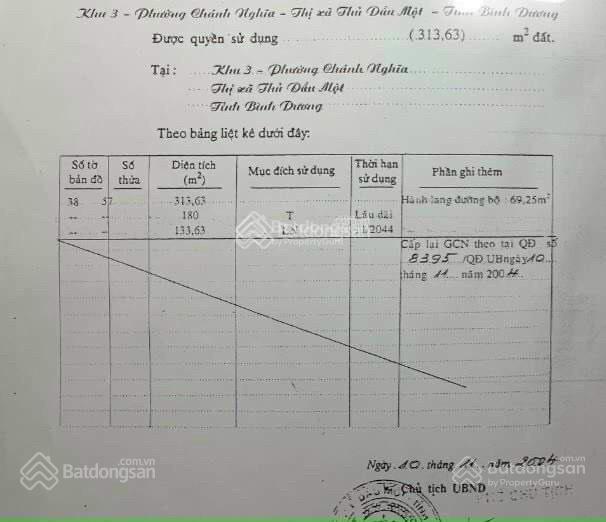 Khu 3 - Phường Chánh Nghĩa - Thị xã Thủ Dầu Một - Tỉnh Bình Dương
Được quyền sử dụng (.313,63) m² đất.
Tại : Khu 3 - Phường Chánh Nghĩa
Thị xã Thủ Dầu Một
Tỉnh Bình Dương
Theo bảng liệt kê dưới đây:
Số tờ bản đồ Số thửa Diện tích (m²) Mục đích sử dụng Thời hạn sử dụng Phần ghi thêm
38 57 313,63 Hành lang đường bộ : 69,25m²
-- -- 180 T Lâu dài
-- -- 133,63 /2044
Cấp lại GCN theo tại QĐ số
8395 /QĐ.UB ngày 10
tháng 11 năm 2004.
Batdongsan.com.vn
by PropertyGuru
Ngày 10 tháng 11 năm 2004
Chủ tịch UBND
PHÓ CHỦ TỊCH
Batdongsan.com.vn
by PropertyGuru
Batdongsan.com.vn
by PropertyGuru